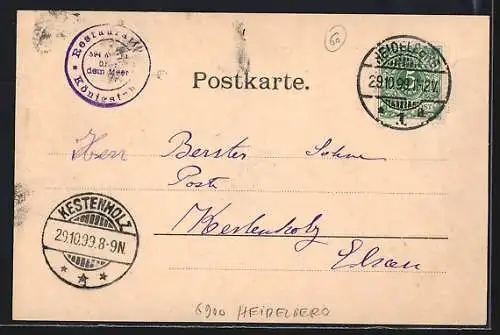 Restaurant
dem Meer
Königstuhl
60
Postkarte.
HEIDELBERG
29.10.99.1-2V.
* 1. a
5
Herr Berster Sohne
Poste
Kestenholz
Elsass
KESTENHOLZ
29.10.99.8-9N.
* 1 *
6900 HEIDELBERG